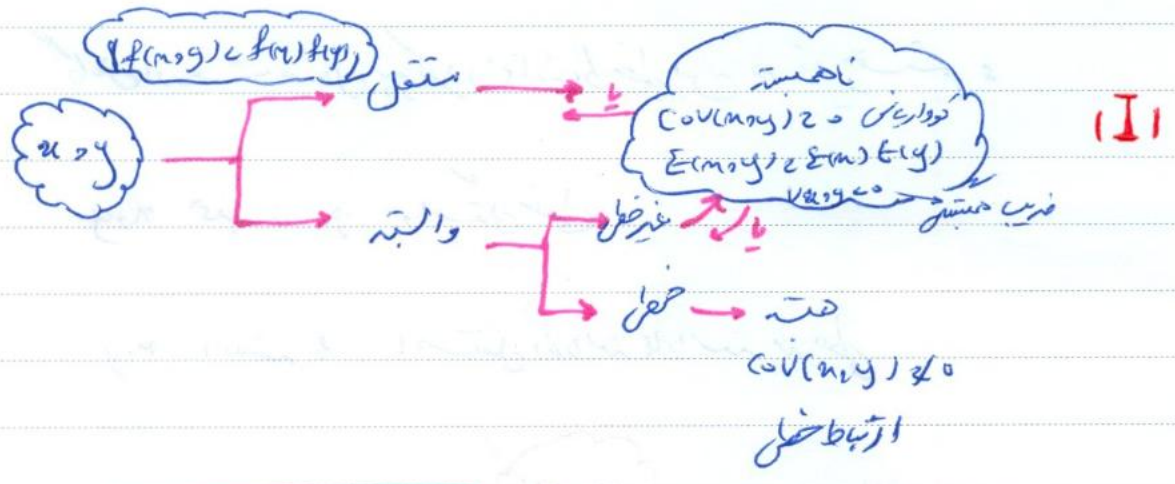 f(x,y) = f(x) f(y)
x, y
مستقل
یا
ناهمبسته
کوواریانس Cov(x,y) = 0
E(x,y) = E(x) E(y)
ضریب همبستگی
(I)
وابسته
غیرخطی
یا
خطی
Cov(x,y) ≠ 0
ارتباط خطی